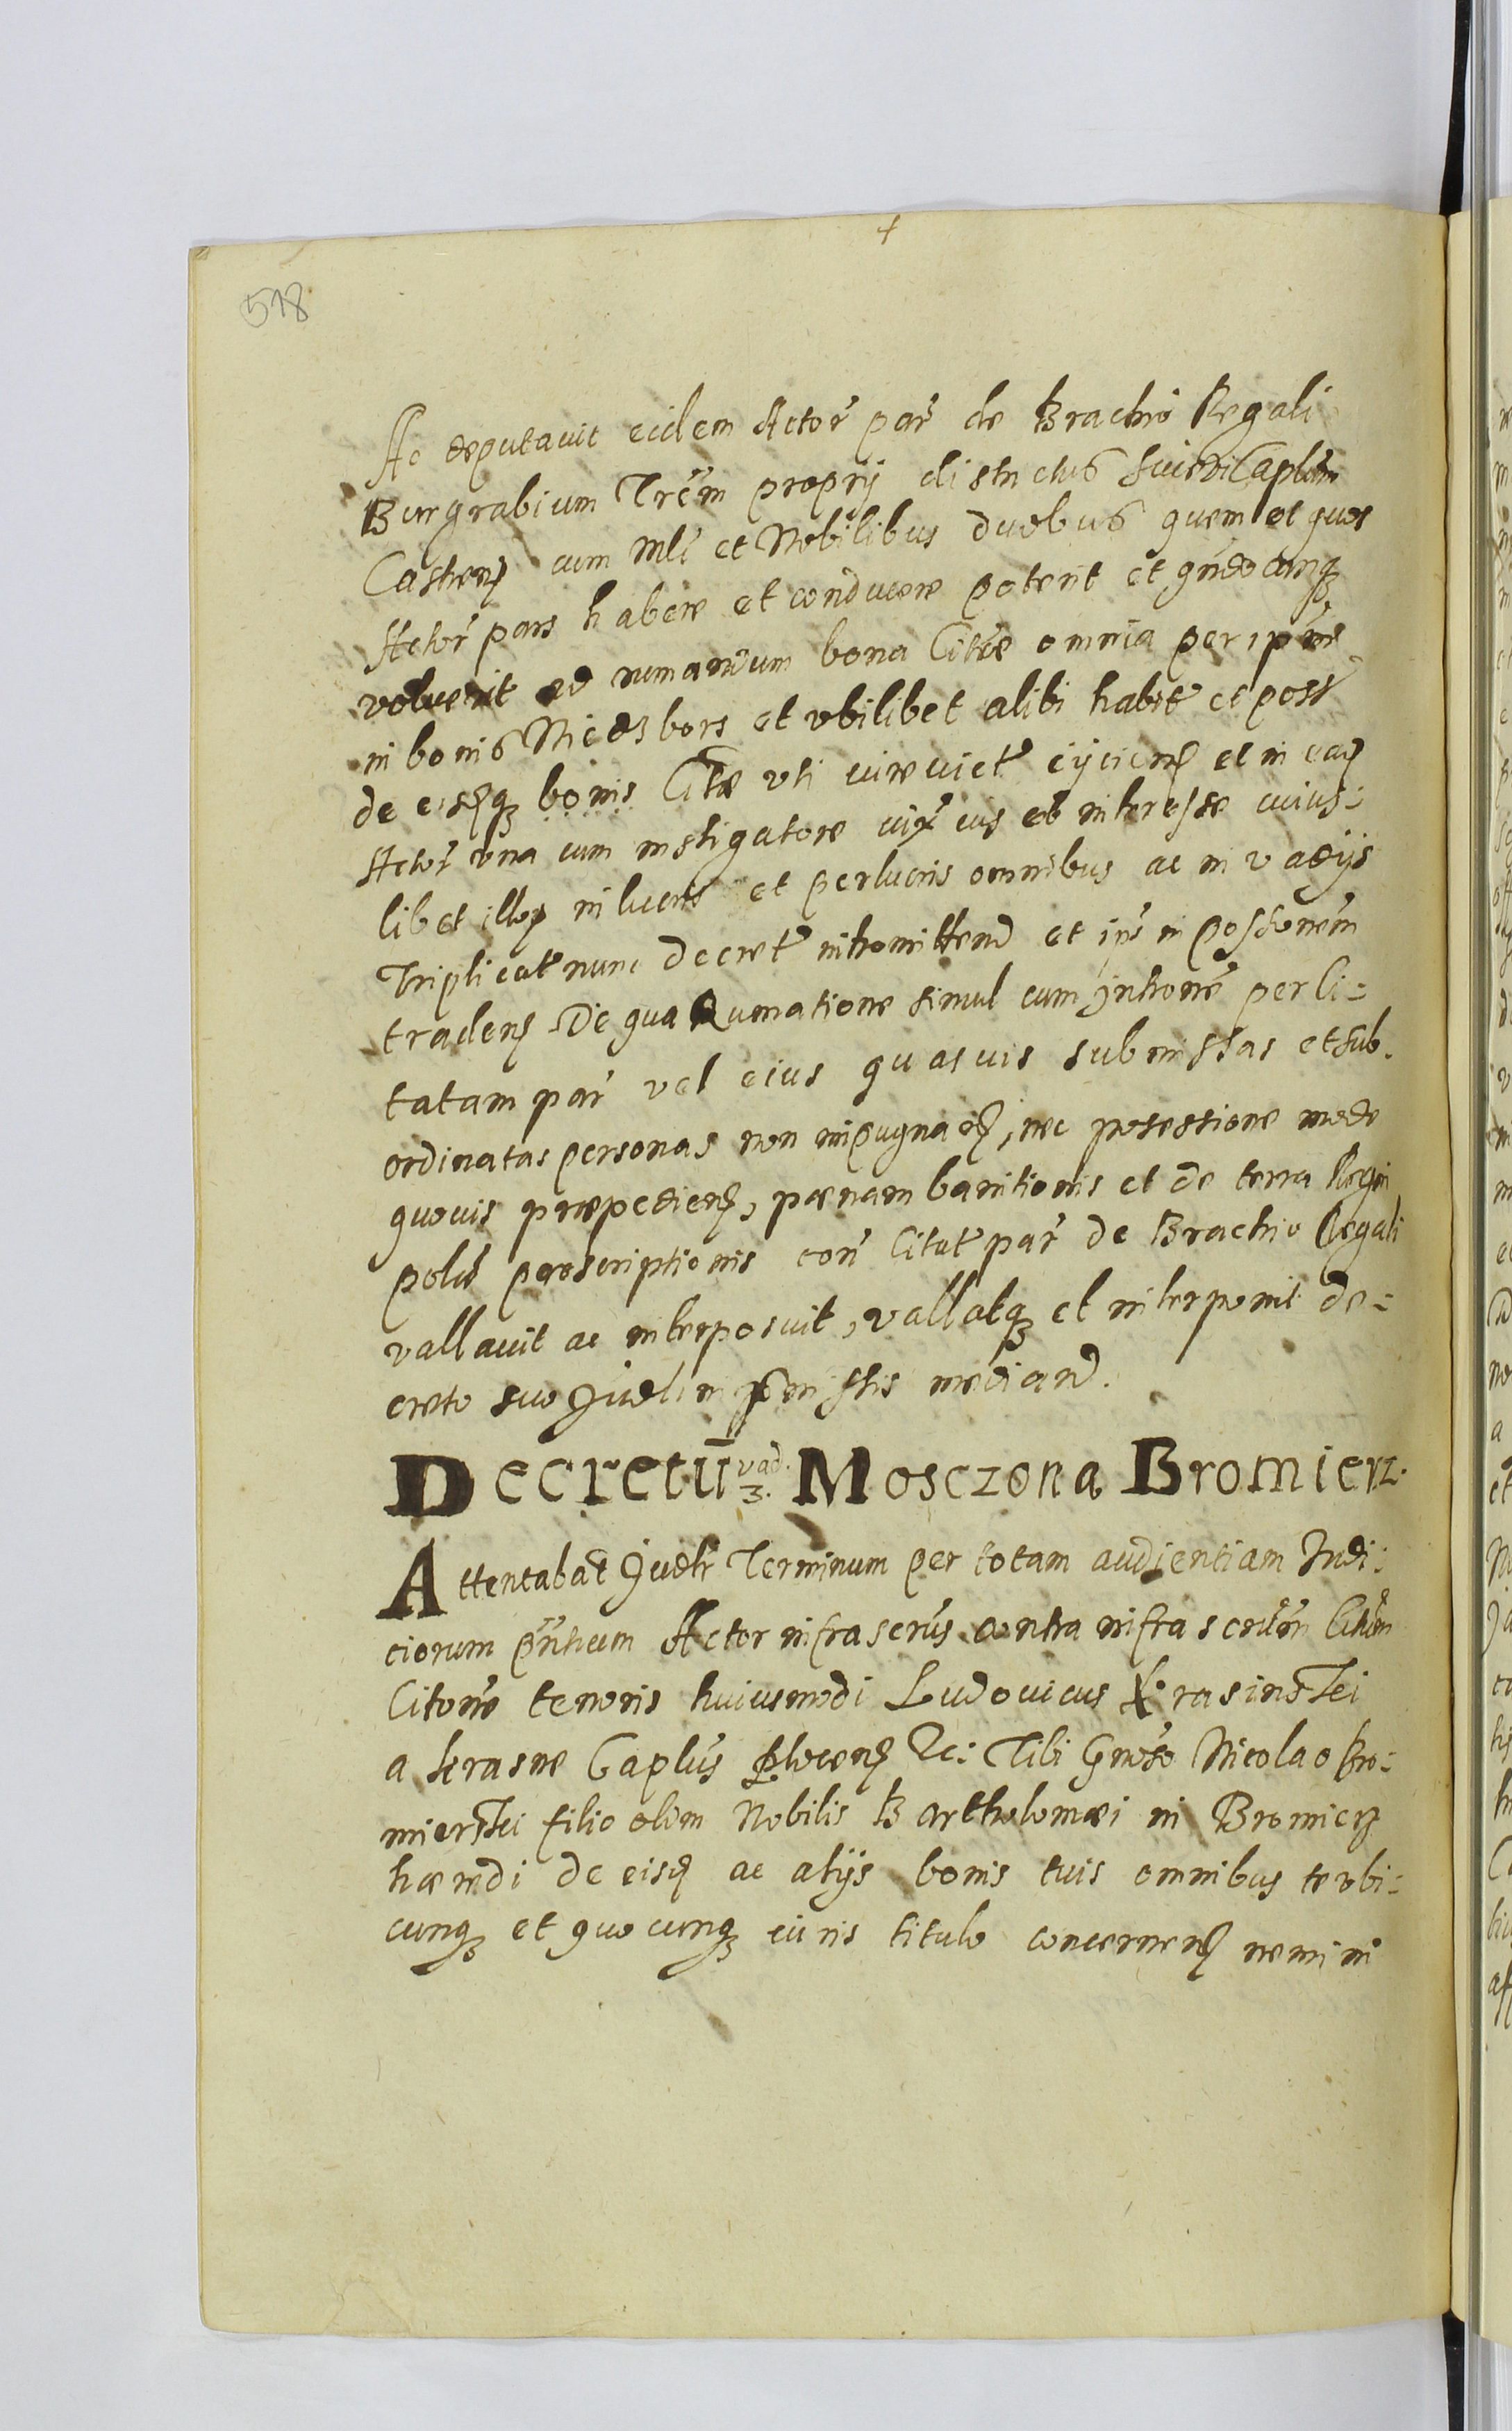 518
Ac deputavit eidem Actor̃ par̃ de Brachio Regali
Burgrabium Trẽm proprij districtus suisVi Caplũm
Castreñ cum Mlĩ et Nobilibus duobus quem et quos
Actor̃ pars habere et conducere poterit et qũdocunq3
voluerit ad rumandum bona Citæ omnia per ipm̃
in bonis Niedzbors et vbilibet alibi habit̃ et poss̃
de eisdq3 bonis Citæ vti iurevict̃ eijcieñ et in eaq
Actor̃ vna cum instigatore iux̃ ius et interesse cuius:
libet illoƿ in lucris et perlucris omnibus ac in vadijs
Triplicat̃ nunc decret̃ intromittend et ips̃ in possionem̃
tradeñ De qua Rumatione simul cum Introne᷉ per Ci=
tatam par̃ vel eius quasvis submissas et sub.
ordinatas personas non impugnañ, nec posessione modo
quovis præpedieñ, pænam banitionis et de terra Regni
poliæ proscriptionis coñ Citat̃ par̃ de Brachio Regali
vallavit ac interposuit, vallatq3 et interponit de=
creto suo Judli in p̃missis mediand.
Decretũ vad. 3. Mosczona Bromierz.
Attentabat Judlr̃ Terminum per totam audientiam Iudi:
ciorum p̃ntium Actor infrascrũs contra infrascrũm Citũm
Citone᷉ tenoris huiusmodi Ludovicus Krasinski
a Krasne Caplũs Ploceñ &c: Tibi Gnoso Nicolao Bro:
mierski filio olim Nobilis Bartholomæi in Bromierz
hæredi de eisq ac alijs bonis tuis omnibus te vbi:
cunq3 et quocunq3 iuris titulo concerneñ nemini